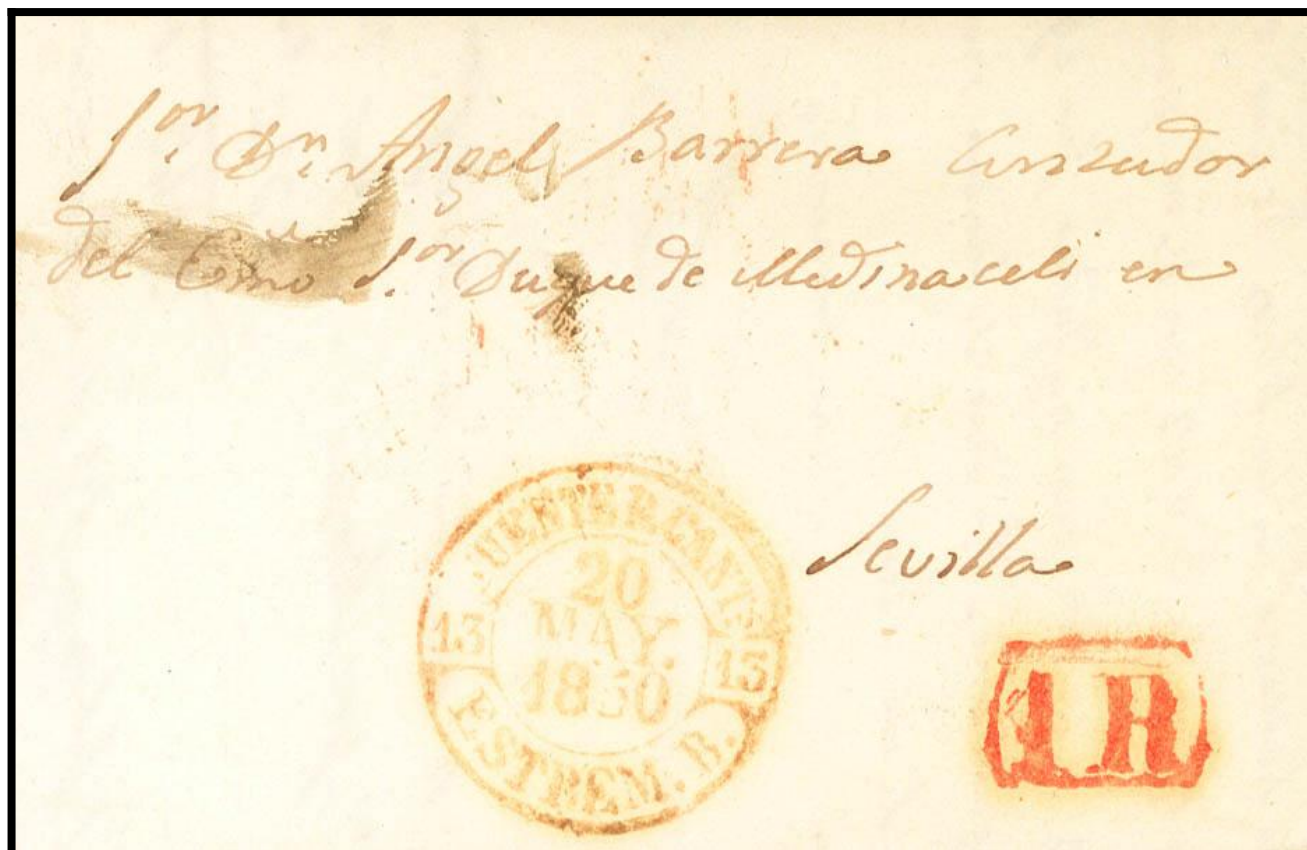 Sor. Dn. Angel Barrera
del Exmo Sor. Duque de Medinaceli en
Sevilla
FUENTE D CANTS
20
MAY.
1850
13 13
ESTREM. B.
1 R